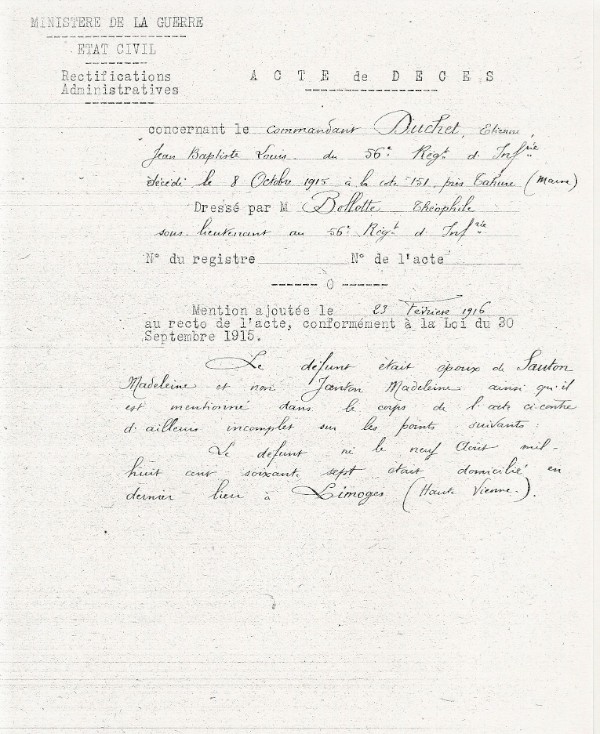 MINISTERE DE LA GUERRE
ETAT CIVIL
Rectifications
Administratives
ACTE de DECES
concernant le Commandant Duchet, Etienne,
Jean Baptiste Louis du 56e Regt d'Infrie
décédé le 8 Octobre 1915 à la cote 151, près Tahure (Marne)
Dressé par M Bollotte Théophile
sous lieutenant au 56e Regt d'Infrie
N° du registre N° de l'acte
------ O ------
Mention ajoutée le 23 Février 1916
au recto de l'acte, conformément à la Loi du 30
Septembre 1915.
Le défunt était époux de Sauton
Madeleine et non Janton Madeleine ainsi qu'il
est mentionné dans le corps de l'acte ci-contre
d'ailleurs incomplet sur les points suivants :
Le défunt né le neuf Août mil-
huit cent soixante sept était domicilié en
dernier lieu à Limoges (Haute Vienne.).